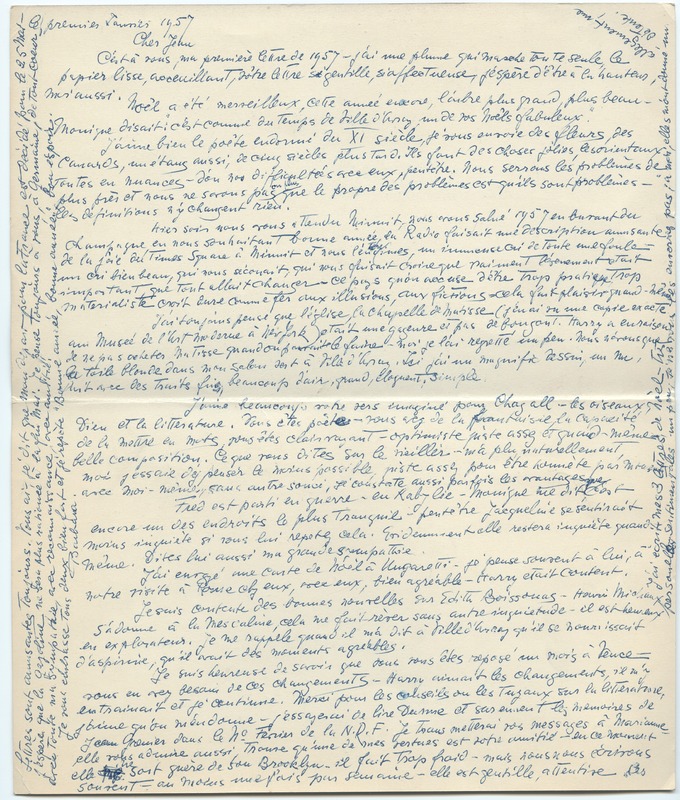 premier Janvier 1957
Cher Jean
C'est à vous, ma première lettre de 1957 – j'ai une plume qui marche toute seule, le
papier lisse, accueillant, votre lettre si gentille, si affectueuse, j'espère d'être à la hauteur,
moi aussi. Noël a été merveilleux, cette année encore, l'arbre plus grand, plus beau –
Monique disait "c'est comme du temps de Ville d'Avray, un de vos Noëls fabuleux".
J'aime bien le poète endormi du XI siècle, je vous envoie des fleurs, des
canards, un étang aussi, de cinq siècles, plus tard. Ils font des choses jolies les orientaux
toutes en nuances – d'où nos difficultés avec eux, peut-être. Nous serrons les problèmes de
plus près et nous ne savons pas que le propre des problèmes est qu'ils sont problèmes –
les définitions n'y changent rien.
Hier soir nous avons attendu Minuit, nous avons salué 1957 en buvant du
champagne en nous souhaitant bonne année, la Radio faisait une description amusante
de la joie du Times Square à Minuit et nous une immense cri de toute une foule
un cri bien beau, qui nous secouait, qui nous faisait croire que vraiment l'évènement était
important que tout allait changer – ce pays qu'on accuse d'être trop pratique trop
matérialiste croit encore comme aux illusions, aux fictions – cela fait plaisir quand-même
J'ai toujours pensé que l'église, la chapelle de Matisse (j'en ai vu une copie exacte
au Musée de l'Art moderne à New York) était une gageure et pas de bon goût. Harry a eu raison
de ne pas acheter Matisse quand on pouvait le faire – moi, je l'ai regretté un peu. Nous avons que
la toile blonde dans mon salon vert à Ville d'Avray. Ici, j'ai un magnifique dessin, un nu,
fait avec des traits fins, beaucoup d'air, grand, éloquent, simple.
J'aime beaucoup votre vers imaginé pour Chagall – les oiseaux
Dieu et la littérature. Vous êtes poète – vous avez de la fantaisie, la capacité
de la mettre en mots, vous êtes clairvoyant – optimiste juste assez et quand-même
belle composition. Ce que vous dites sur le vieillir – m'a plu naturellement,
moi j'essaie d'y penser le moins possible, juste assez pour être honnête pas
avec moi-même, sans autre souci, je constate aussi parfois les avantages
Fred est parti en guerre – en Kabylie – Monique me dit c'est
encore un des endroits le plus tranquil – peut-être Jacqueline se sentirait
moins inquiète si vous lui répétez cela. Évidemment elle restera inquiète quand
même. Dites lui aussi ma grande sympathie.
J'ai envoyé une carte de Noël à Ungaretti – je pense souvent à lui, à
notre visite à Rome chez eux, avec eux, bien agréable – Harry était content.
Je suis contente des bonnes nouvelles sur Edith Boissonnas – Henri Michaux
s'adonne à la Mescaline, cela me fait rêver sans autre inquiétude – il est heureux
en explorateur. Je me rappelle quand il m'a dit à Ville d'Avray qu'il se nourrissait
d'aspirine, qu'il avait des moments agréables.
Je suis heureuse de savoir que vous vous êtes reposé un mois à Vence
vous en avez besoin de ces changements – Harry aimait les changements, il m'y
entraînait et je continue. Merci pour les conseils ou les tuyaux sur la littérature,
j'aime qu'on m'en donne – j'essayerai de lire et sûrement les mémoires de
Jean Grenier dans le No. Février de la N.R.F. Je transmetterai vos messages à Marianne
elle vous admire aussi, trouve qu'une de mes vertues est votre amitié – en ce moment
elle ne sort guère de son Brooklyn – il fait trop froid – mais nous nous écrivons
souvent – au moins une fois par semaine – elle est gentille, attentive Ses
lettres sont amusantes toujours. Vous ai-je dit que mon départ pour la France est décidé pour le 25 Mai –
J'espère que la gazoline ne sera plus rationnée à la fin Mai. Je pense toujours à vous, à Germaine, de tout coeur &
avec toute ma sympathie, avec reconnaissance, avec amitié.
Je vous embrasse tous deux bien fort et je répète "Bonne année, bonne année, bon espoir".
Barbara
J'ai écrit mes 3 lettres de